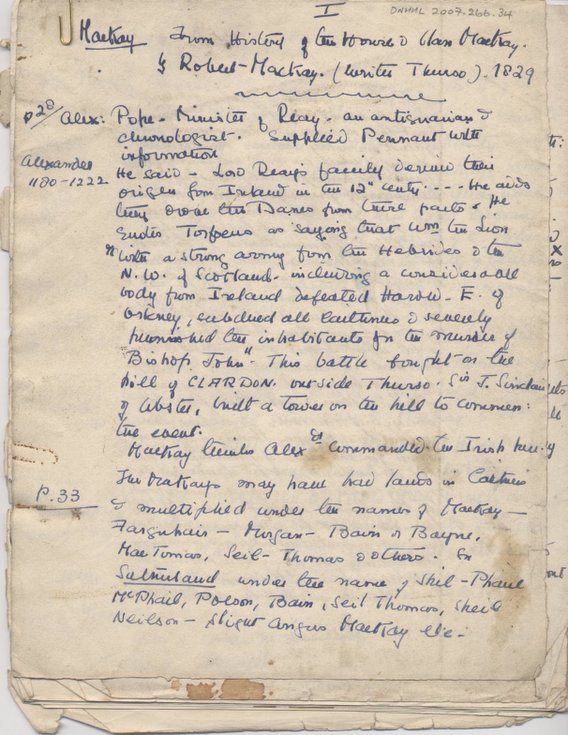 I
DNHHL 2007.266.34
Mackay From History of the House & Clan Mackay.
by Robert Mackay. (writer Thurso). 1829
p28/ Alex: Pope - Minister of Reay - an antiquarian &
chronologist. Supplied Pennant with
information
Alexander
1180-1222
He said - Lord Reay's family derive their
origin from Ireland in the 12th centy. ---- He adds
they drove the Danes from these parts. He
quotes Torfoeus as saying that Wm the Lion
"with a strong army from the Hebrides & the
N.W. of Scotland - including a considerable
body from Ireland defeated Harold - E. of
Orkney, subdued all Caithness & severely
punished the inhabitants for the murder of
Bishop John". This battle fought on the
hill of CLARDON outside Thurso. Sir J. Sinclair
of Ulbster, built a tower on the hill to commem:
the event.
Mackay thinks Alexer commanded the Irish
p.33
The Mackays may have had lands in Caithness
& multiplied under the names of Mackay -
Farquhair - Morgan - Bain or Bayne,
MacTomas, Seil-Thomas & others. In
Sutherland under the name of Shil-Phaul
McPhail, Polson, Bain, Seil Thomas, Sheil
Neilson - Slight Angus Mackay etc-